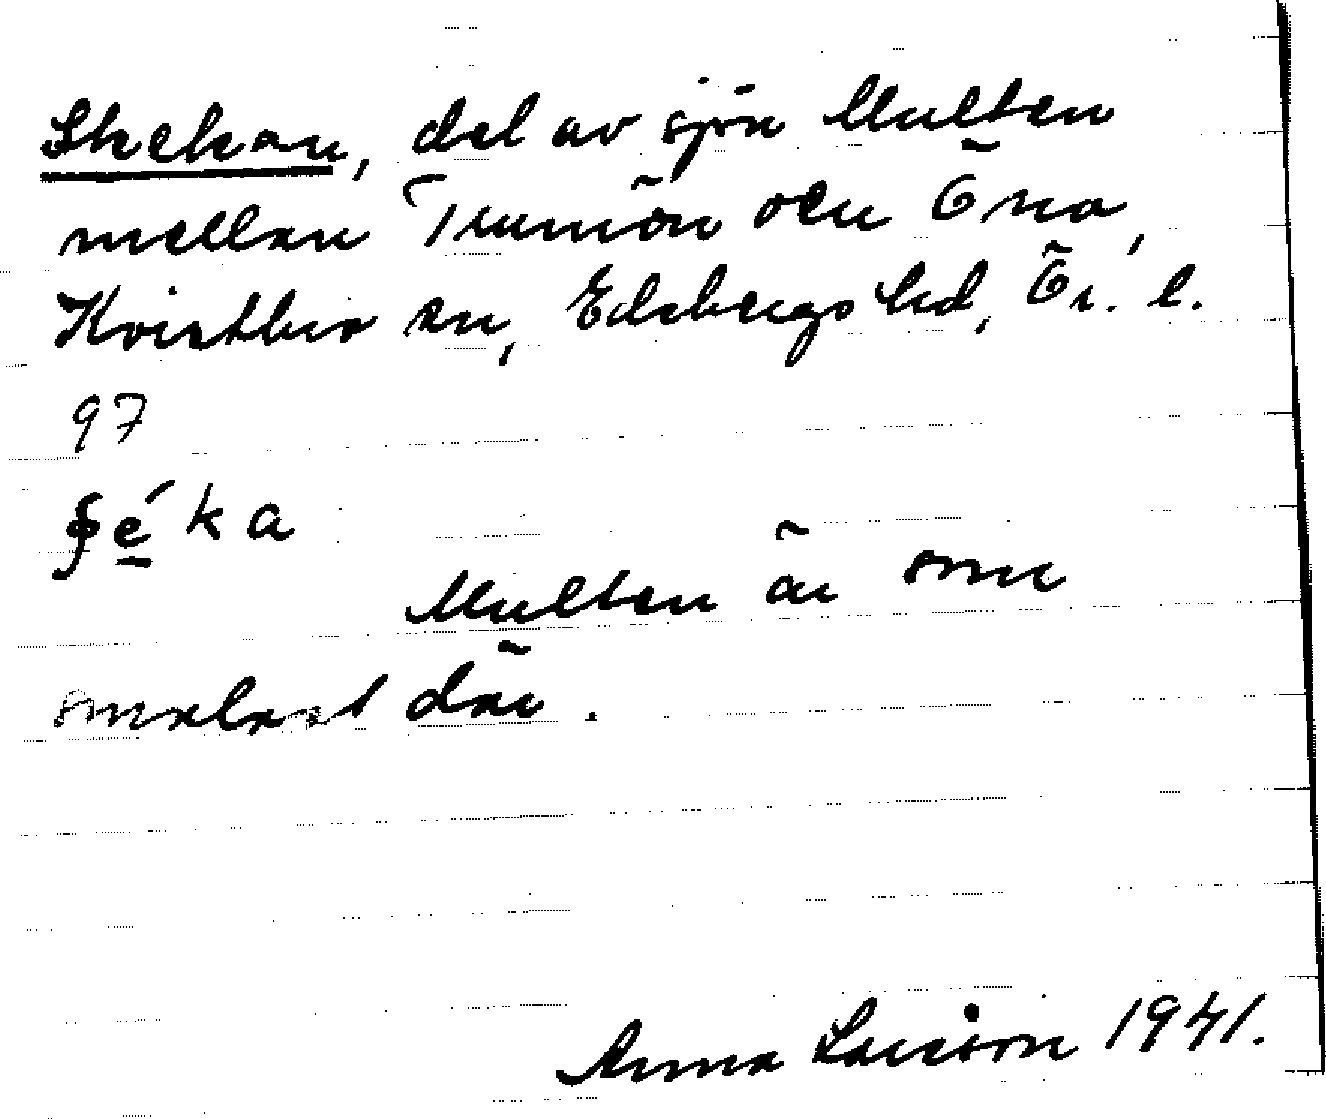 Skekan, del av sjön Multen
mellan Trumön och Öna,
Kvistbro sn, Edsbergs hd, Ör. l.
97
ʃé̱ka
Multen är som
smalast där.
Anna Larsson 1941.